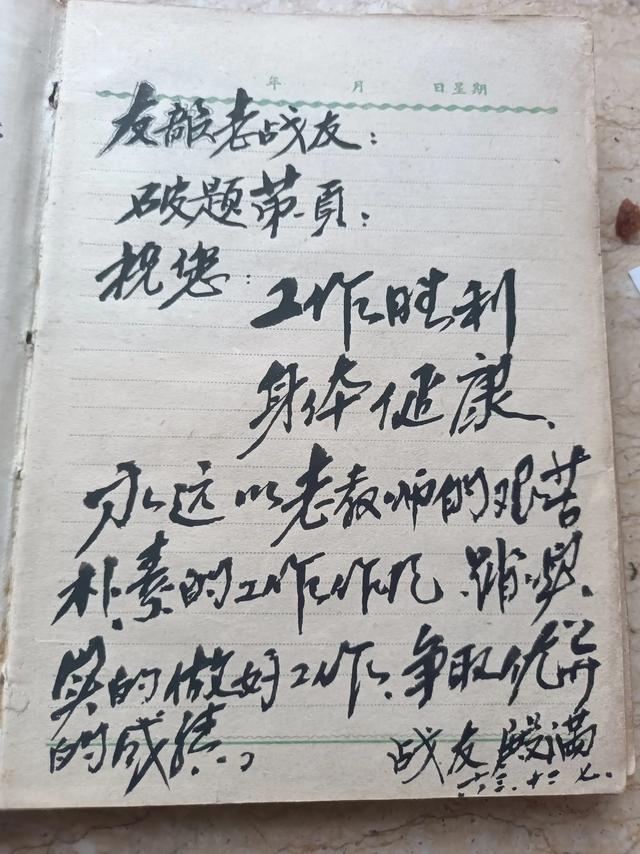 年 月 日星期
友韶老战友：
破题第一頁：
祝您：
工作胜利
身体健康、
永远以老教师的艰苦
朴素的工作作风、踏实、
实的做好工作、争取优异
的成绩。
战友 殿满
六三.十二.七.